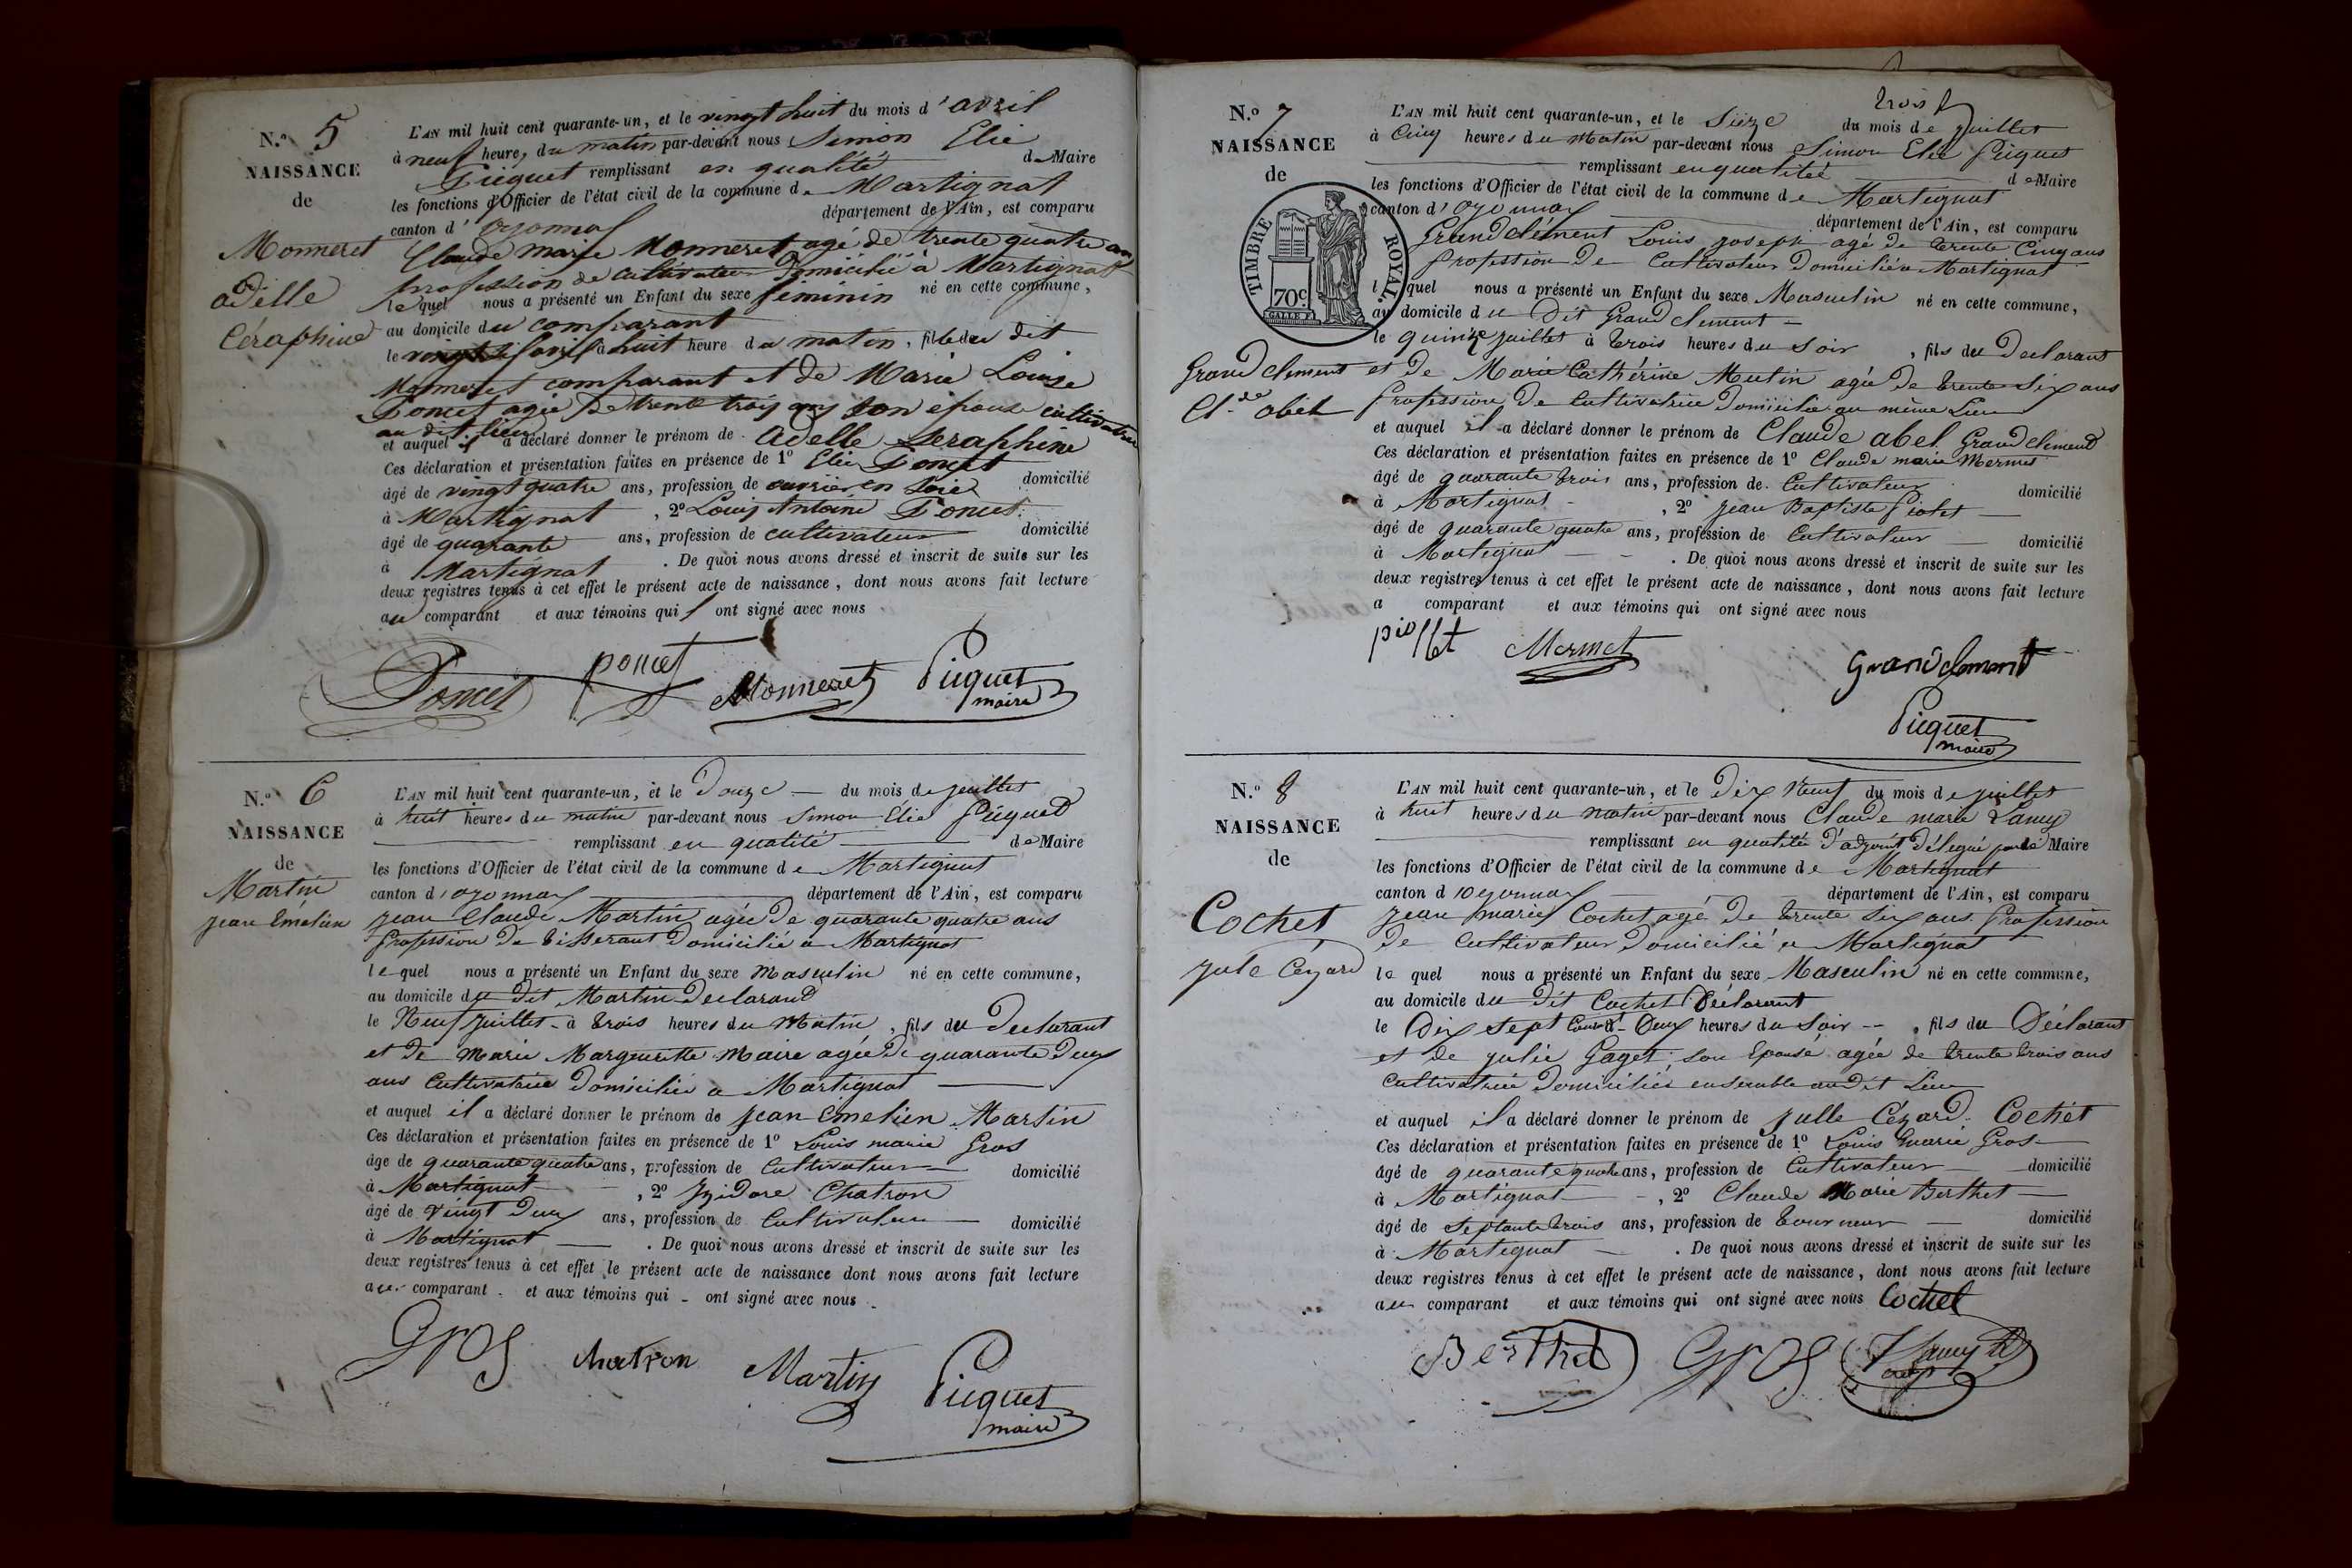 N.º 5
NAISSANCE
de
Monneret
adèlle
Céraphine
L'AN mil huit cent quarante-un, et le vingt huit du mois d'avril
à neuf heures du matin par-devant nous Simon Elie
Picquet remplissant en qualité de Maire
les fonctions d'Officier de l'état civil de la commune de Martignat
canton d'oyonnax département de l'Ain, est comparu
Claude marie Monneret agé de trente quatre ans
profession de cultivateur domicilié à Martignat
lequel nous a présenté un Enfant du sexe féminin né en cette commune,
au domicile du comparant
le avril à huit heure du matin, fille du dit
Monneret comparant et de Marie Louise
Poncet agée de trente trois ans son épouse cultivatrice
au dit lieu
et auquel il a déclaré donner le prénom de adelle Seraphine
Ces déclaration et présentation faites en présence de 1º Elie Poncet
âgé de vingt quatre ans, profession de ouvrier en soie domicilié
à Martignat, 2º Louis Antoine Poncet
âgé de quarante ans, profession de cultivateur domicilié
à Martignat. De quoi nous avons dressé et inscrit de suite sur les
deux registres tenus à cet effet le présent acte de naissance, dont nous avons fait lecture
au comparant et aux témoins qui ont signé avec nous
Poncet poncet Monneret Picquet
maire
N.º 6
NAISSANCE
de
Martin
jean Emélien
L'AN mil huit cent quarante-un, et le Douze du mois de juillet
à huit heures du matin par-devant nous Simon Elie Picquet
remplissant en qualité de Maire
les fonctions d'Officier de l'état civil de la commune de Martignat
canton d'oyonnax département de l'Ain, est comparu
jean Claude Martin agée de quarante quatre ans
profession de tisserant Domicilié a Martignat
lequel nous a présenté un Enfant du sexe Masculin né en cette commune,
au domicile du dit Martin Declarand
le Neuf juillet à trois heures du Matin, fils du Declarant
et de Marie Margueritte Maire agée de quarante Deux
ans Cultivatrice Domiciliée a Martignat
et auquel il a déclaré donner le prénom de jean Emelien Martin
Ces déclaration et présentation faites en présence de 1º Louis marie Gros
âge de quarante quatre ans, profession de Cultivateur domicilié
à Martignat, 2º Izidore Chatron
âgé de vingt Deux ans, profession de Cultivateur domicilié
à Martignat. De quoi nous avons dressé et inscrit de suite sur les
deux registres tenus à cet effet le présent acte de naissance dont nous avons fait lecture
au comparant et aux témoins qui ont signé avec nous
Gros chatron Martin Picquet
maire
trois
N.º 7
NAISSANCE
de
TIMBRE ROYAL
70c.
Grand clement
Cl.de abel
L'AN mil huit cent quarante-un, et le Seize du mois de juillet
à Cinq heures du Matin par-devant nous Simon Elie Picquet
remplissant en qualité de Maire
les fonctions d'Officier de l'état civil de la commune de Martignat
canton d'oyonnax département de l'Ain, est comparu
Grand clément Louis joseph agé de trente Cinq ans
profession De Cultivateur Domicilié a Martignat
l quel nous a présenté un Enfant du sexe Masculin né en cette commune,
au domicile du Dit Grand clement
le quinze juillet à trois heures du Soir, fils du Declarant
et de Marie Cathérine Mutin agée De trente Six ans
profession De Cultivatrice Domiciliée au même Lieu
et auquel il a déclaré donner le prénom de Claude abel Grand clement
Ces déclaration et présentation faites en présence de 1º Claude marie Mermet
âgé de quarante trois ans, profession de Cultivateur domicilié
à Martignat, 2º jean Baptiste Piolet
âgé de quarante quatre ans, profession de Cultivateur domicilié
à Martignat. De quoi nous avons dressé et inscrit de suite sur les
deux registres tenus à cet effet le présent acte de naissance, dont nous avons fait lecture
a comparant et aux témoins qui ont signé avec nous
piollet Mermet Grand clement
Picquet
maire
N.º 8
NAISSANCE
de
Cochet
jule Cézard
L'AN mil huit cent quarante-un, et le Dix Neuf du mois de juillet
à huit heures du matin par-devant nous Claude marie Lamy
remplissant en qualitée d'adjoint Délégué par le Maire
les fonctions d'Officier de l'état civil de la commune de Martignat
canton d'Oyonnax département de l'Ain, est comparu
jean marie Cochet agé de trente Six ans Profession
De Cultivateur Domicilié a Martignat
le quel nous a présenté un Enfant du sexe Masculin né en cette commune,
au domicile du Dit Cochet Déclarant
le Dix Sept Courant Deux heures du Soir, fils du Déclarant
et de julie Gaget son Epouse agée de trente trois ans
Cultivatrice Domiciliés ensemble audit Lieu
et auquel il a déclaré donner le prénom de julle Cézard Cochet
Ces déclaration et présentation faites en présence de 1º Louis Marie Gros
âgé de quarante quatre ans, profession de Cultivateur domicilié
à Martignat, 2º Claude Marie Berthet
âgé de septante trois ans, profession de tourneur domicilié
à Martignat. De quoi nous avons dressé et inscrit de suite sur les
deux registres tenus à cet effet le présent acte de naissance, dont nous avons fait lecture
au comparant et aux témoins qui ont signé avec nous Cochet
Berthet Gros Lamy